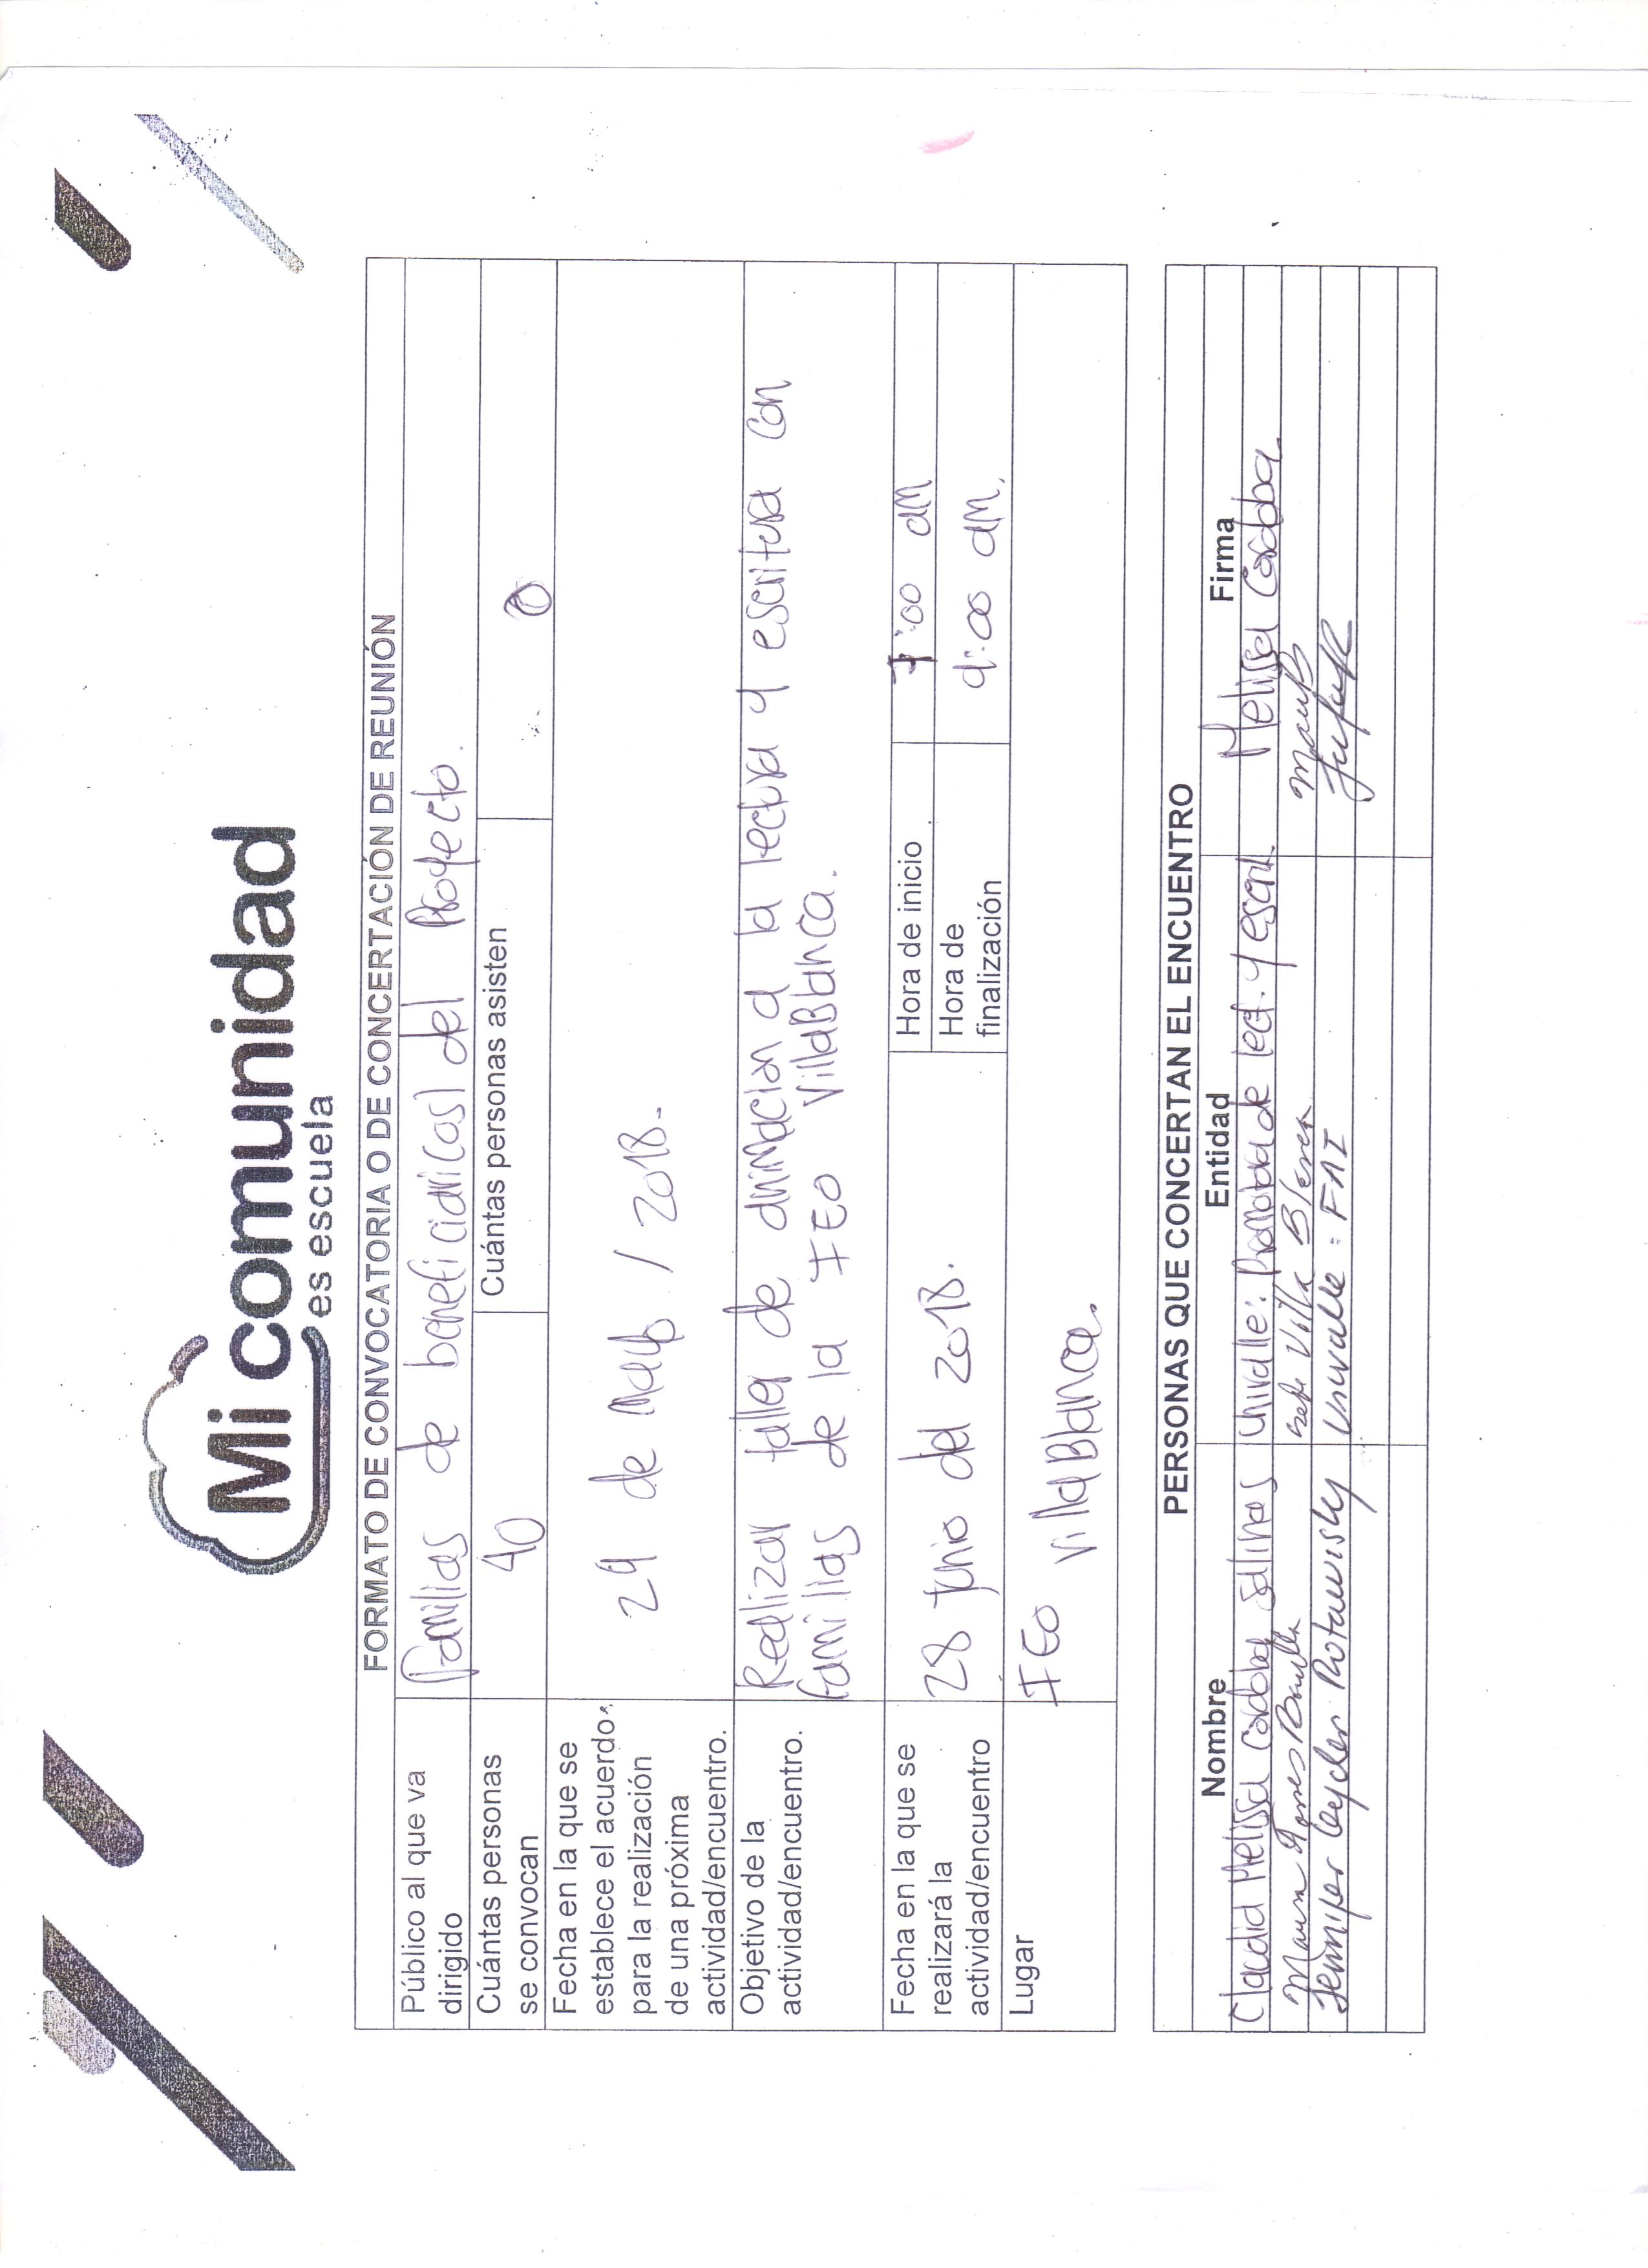 Mi comunidad
es escuela
FORMATO DE CONVOCATORIA O DE CONCERTACIÓN DE REUNIÓN
Público al que va
dirigido
Familias de beneficiari(os) del Proyecto.
Cuántas personas
se convocan
40
Cuántas personas asisten
0
Fecha en la que se
establece el acuerdo
para la realización
de una próxima
actividad/encuentro.
29 de Mayo / 2018.
Objetivo de la
actividad/encuentro.
Realizar taller de animacion a la lectura y escritura con
familias de la IEO VillaBlanca.
Fecha en la que se
realizará la
actividad/encuentro
28 Junio del 2018.
Hora de inicio
7:00 am
Hora de
finalización
9:00 am.
Lugar
IEO
VillaBlanca.
PERSONAS QUE CONCERTAN EL ENCUENTRO
Nombre Entidad Firma
Claudia Melissa Cordoba Salinas Univalle: Promotora de lect. y escrit. Melissa Cordoba
Torres Villa Blanca
Jennifer Rotawisky Univalle : FAI